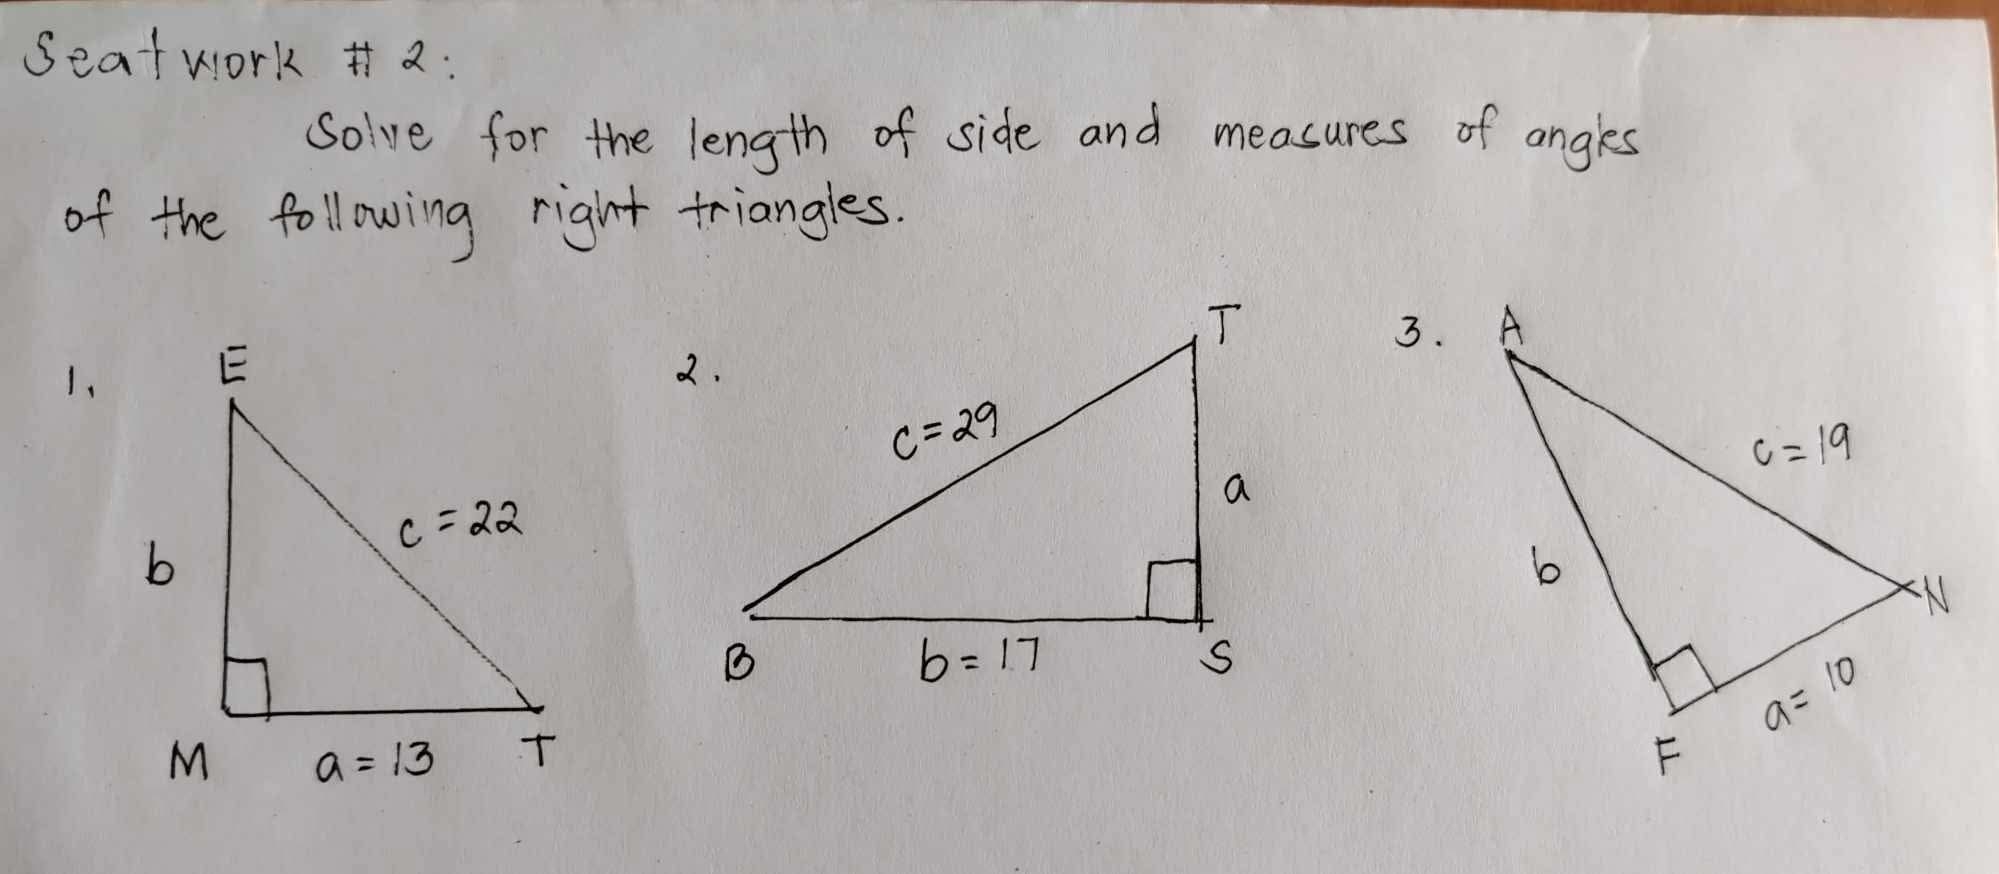 Seatwork # 2:
Solve for the length of side and measures of angles
of the following right triangles.
1.
E
b
c = 22
M
a = 13
T
2.
T
c = 29
a
B
b = 17
S
3.
A
c = 19
b
N
a = 10
F